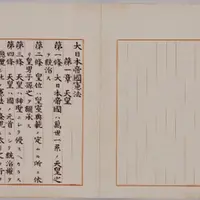 大日本帝國憲法
第一章 天皇
第一條 大日本帝國ハ萬世一系ノ天皇之
ヲ統治ス
第二條 皇位ハ皇室典範ノ定ムル所ニ依
リ皇男子孫之ヲ繼承ス
第三條 天皇ハ神聖ニシテ侵スヘカラス
第四條 天皇ハ國ノ元首ニシテ統治權ヲ